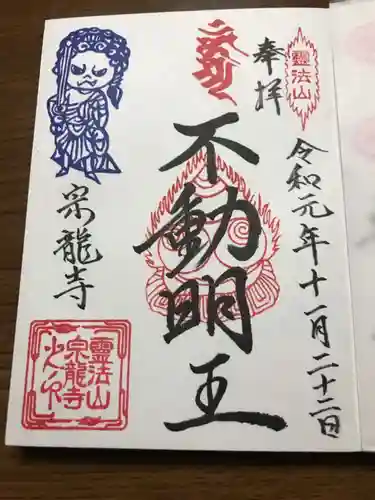 奉拝
靈法山
令和元年十一月二十二日
不動明王
宗龍寺
靈法山
宗龍寺
之印